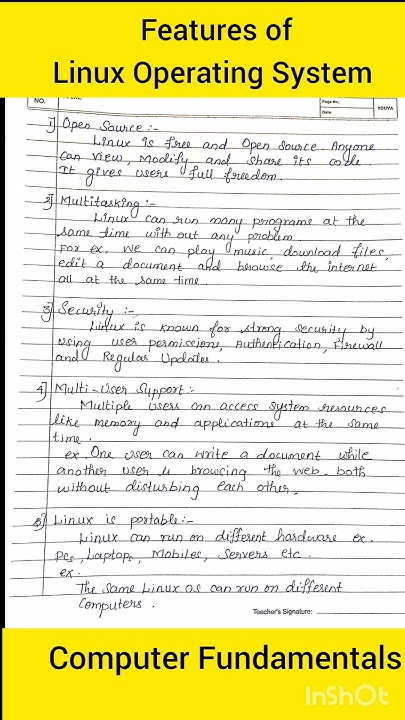 Features of
Linux Operating System
NO.
Page No.:
Date:
YOUVA
1] Open Source :-
Linux is free and Open Source. Anyone
can view, Modify and share its code.
It gives users full freedom.
2] Multitasking :-
Linux can run many programs at the
same time with out any problem.
For ex. We can play music, download files,
edit a document and browse the internet
all at the same time.
3] Security :-
Linux is known for strong security by
using user permissions, Authentication, Firewall
and Regular Updates.
4] Multi-User Support :-
Multiple users can access system resources
like memory and applications at the same
time.
ex. One user can write a document while
another user is browsing the web. both
without disturbing each other.
5] Linux is portable :-
Linux can run on different hardware ex.
PCs, Laptops, Mobiles, Servers etc.
ex.
The Same Linux OS can run on different
Computers.
Teacher's Signature:
Computer Fundamentals
InShOt